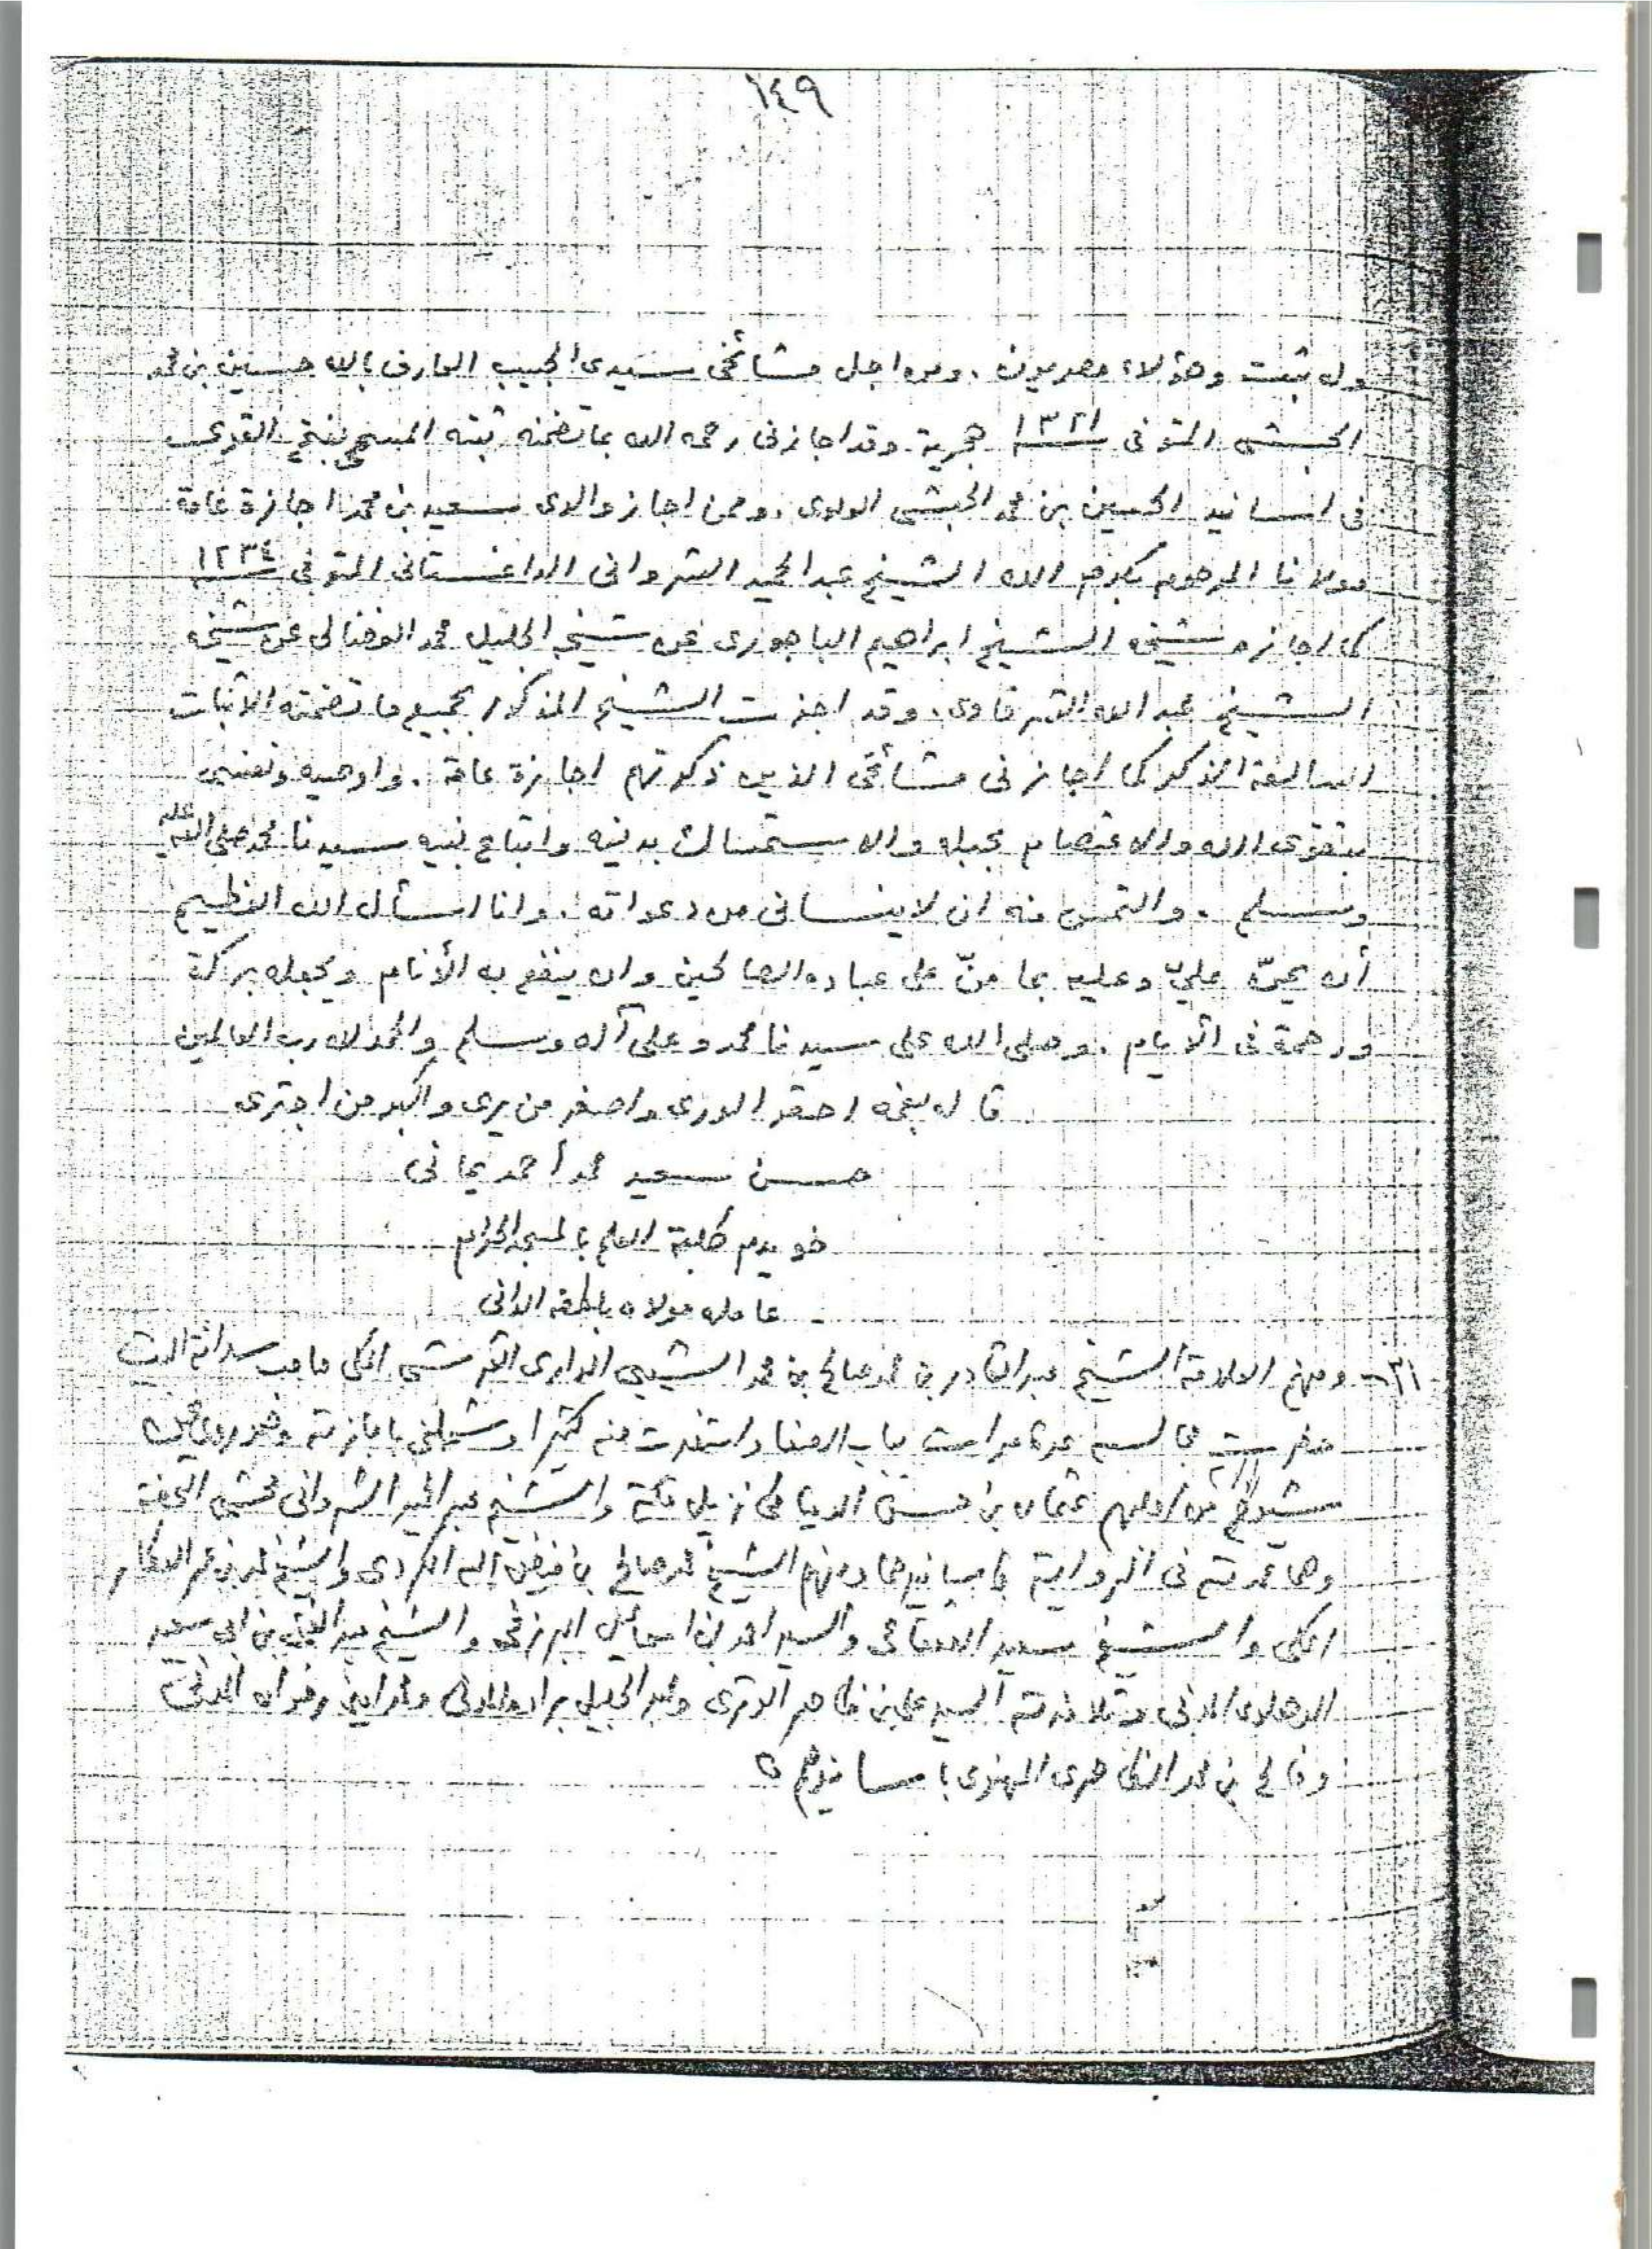 ١٤٩
وله ثبت وهؤلاء مصريون . ومن اجل مشائخى سيدى الحبيب العارف بالله حسين بن محمد
الحبشى المتوفى ١٣٢١ هجرية وقد اجازنى رحمه الله بما تضمنه ثبته المسمى بفتح القوى
فى اسانيد الحسين بن محمد الحبشى العلوى . وممن اجاز والدى سعيد بن محمد اجازة عامة
مولانا المرحوم بكرم الله الشيخ عبد الحميد الشروانى الداغستانى المتوفى ١٢٣٤
كما اجازه شيخه الشيخ ابراهيم الباجورى عن شيخه الجليل محمد الفضالى عن شيخه
الشيخ عبد الله الشرقاوى . وقد اجزت الشيخ المذكور بجميع ما تضمنته الاثبات
السالفة الذكر كما اجازنى مشائخى الذين ذكرتهم اجازة عامة . واوصيه ونفسى
بتقوى الله والاعتصام بحبله والاستمساك بدينه واتباع نبيه سيدنا محمد صلى الله عليه
وسلم . والتمس منه ان لا ينسانى من دعواته . وانا اسأل الله العظيم
أن يمنّ عليّ وعليه بما منّ على عباده الصالحين وان ينفع به الأنام ويجعله بركة
ورحمة فى الأيام . وصلى الله على سيدنا محمد وعلى آله وسلم والحمد لله رب العالمين
قاله بفمه احقر الورى واصغر من يرى واكبر من اجترى
حسن سعيد محمد أحمد يمانى
خويدم طلبة العلم بالمسجد الحرام
عامله مولاه بلطفه الدانى
٣١- ومنهم العلامة الشيخ عبد القادر بن محمد صالح بن محمد الشيبى الدارى القرشى المكى صاحب سدانة البيت
حضرت مجالسه عدة مرات بباب الصفا واستفدت منه كثيرا وشملنى باجازته وهو يروى عن
شيوخ من اجلهم عثمان بن حسن الدمياطى نزيل مكة والشيخ عبد الحميد الشروانى محشى التحفة
وهما عمدته فى الرواية باسانيدهما ومنهم الشيخ محمد صالح بن فيض الله الكردى والشيخ محمد بن عمر العطار
المكى والشيخ سعيد القعقاعى والسيد احمد بن اسماعيل البرزنجى والشيخ عبد الغنى بن ابى سعيد
الدهلوى المدنى وتلامذته السيد على بن ظاهر الوترى وعبد الجليل برادة المدنى ومحمد امين رضوان المدنى
وفالح بن محمد الظاهرى المهنوى باسانيدهم